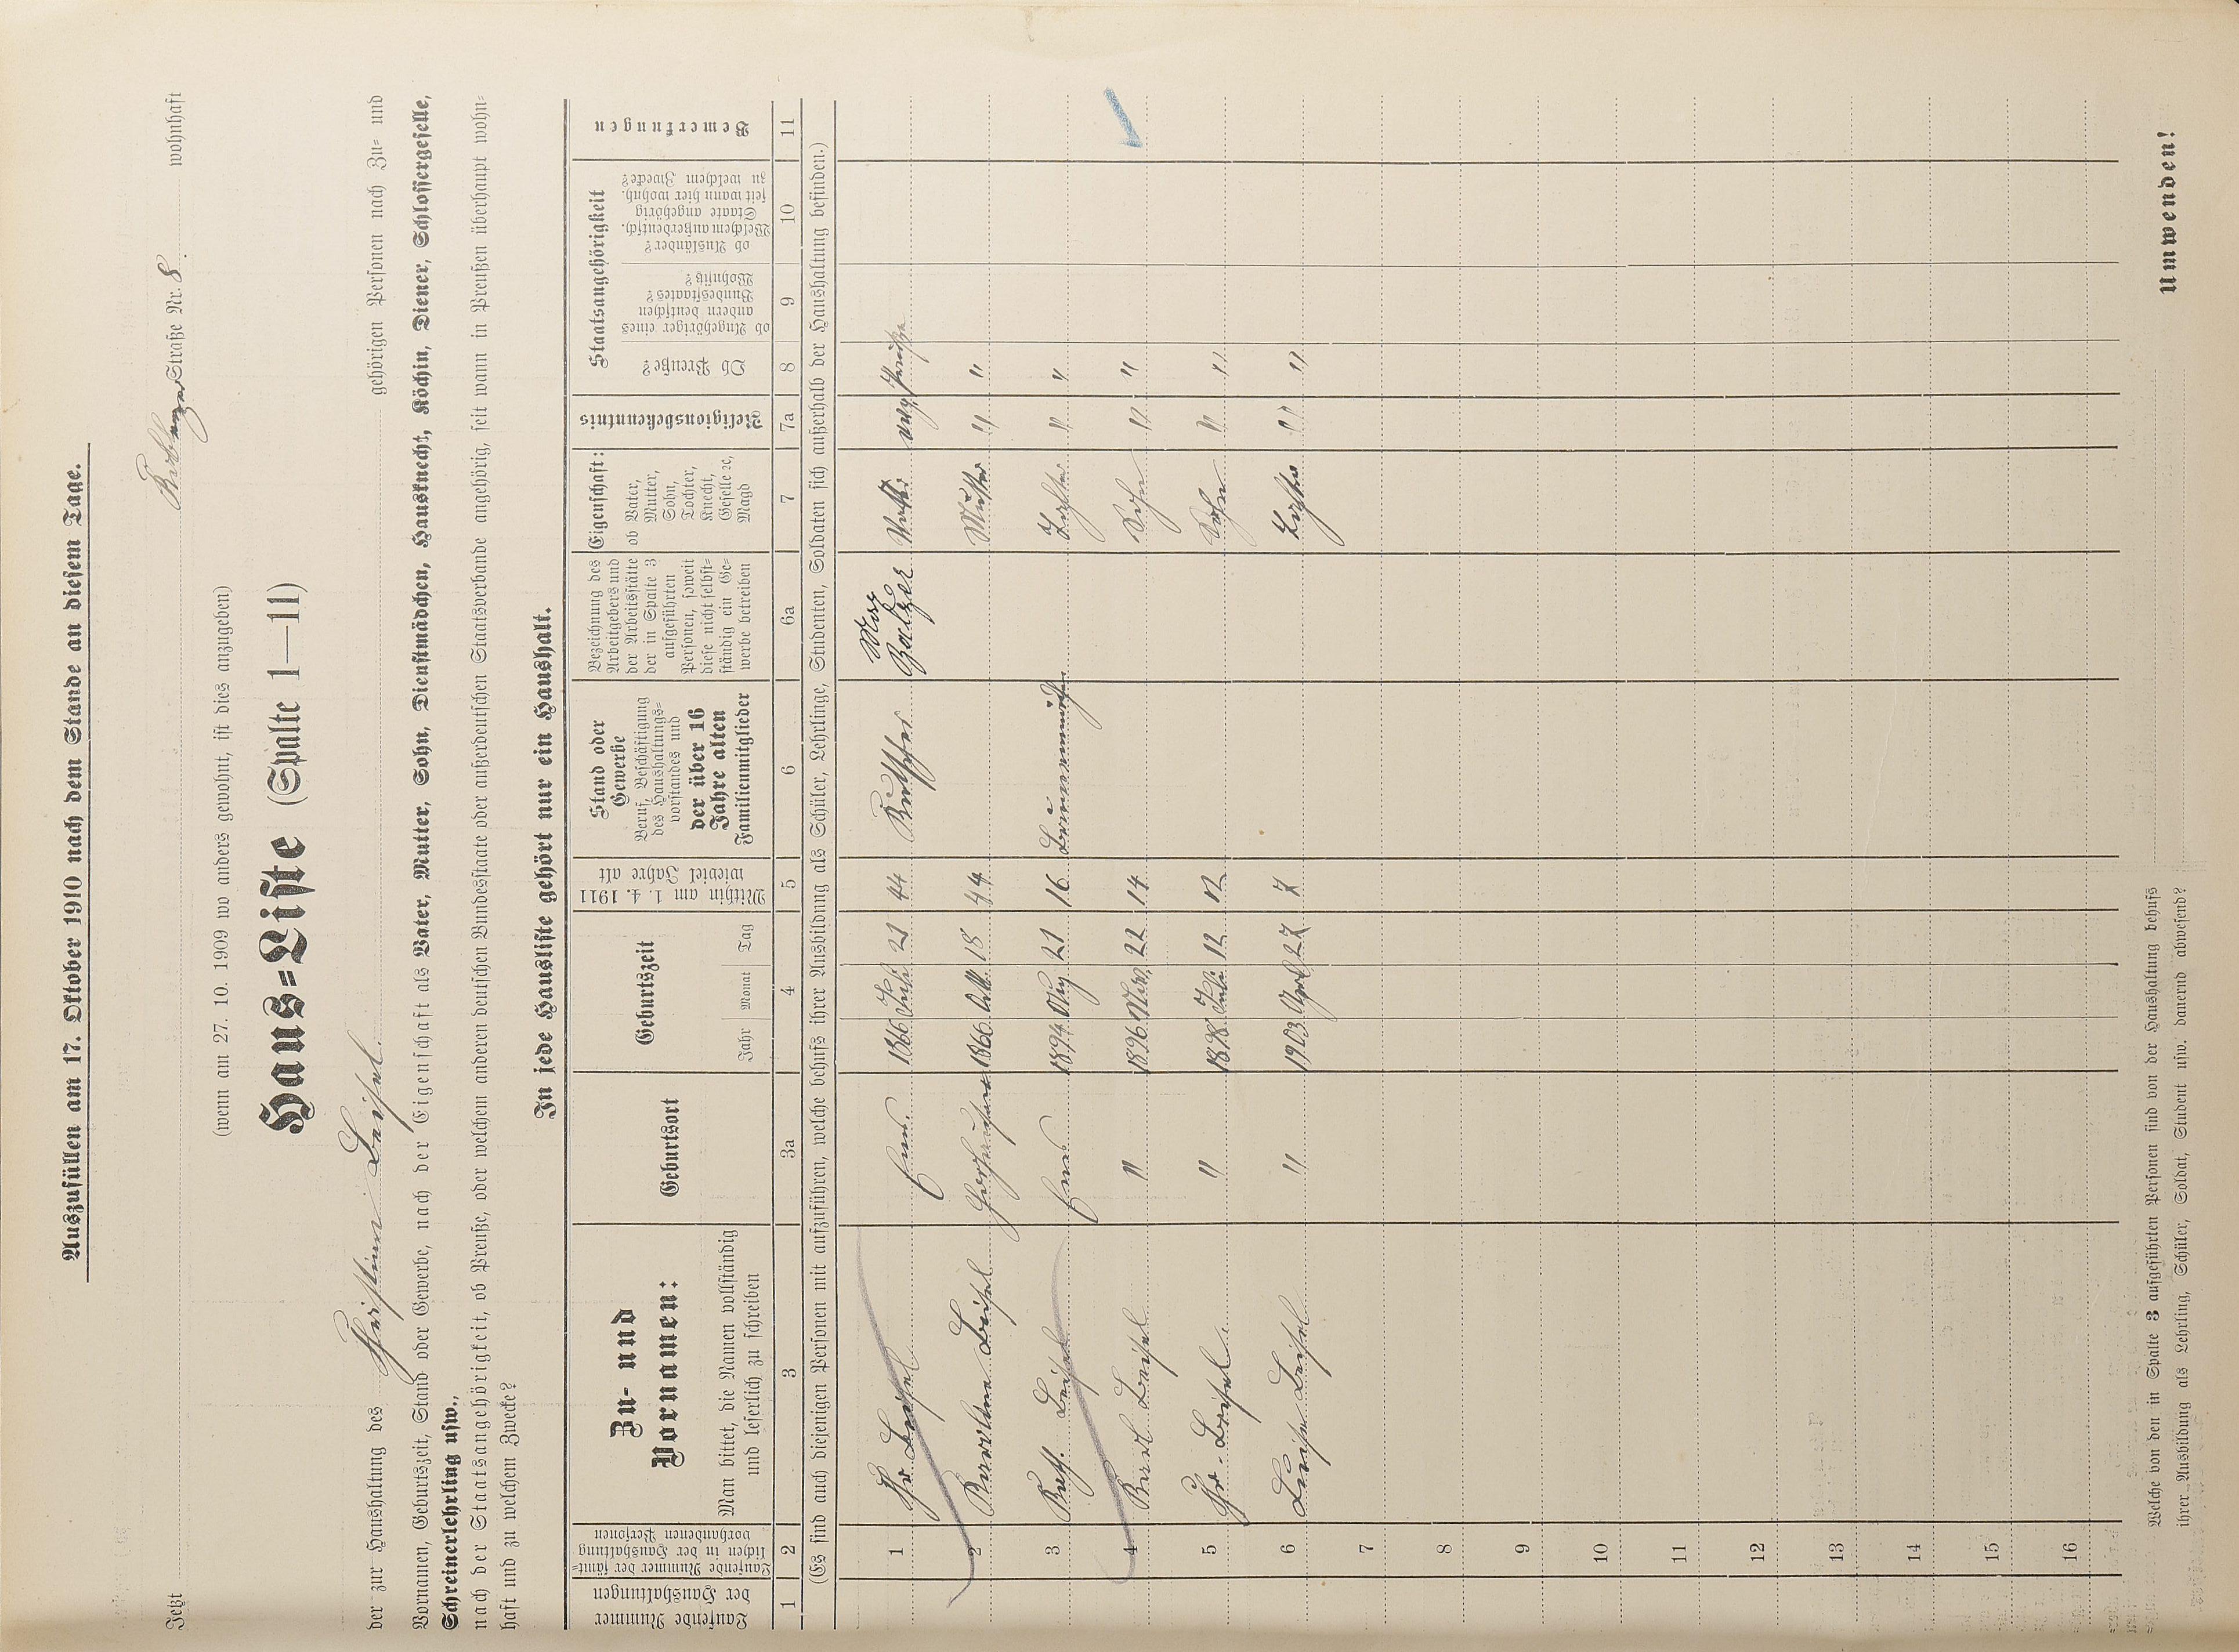 Auszufüllen am 17. Oktober 1910 nach dem Stande an diesem Tage.
Jetzt Straße Nr. 8 wohnhaft
(wenn am 27. 10. 1909 wo anders gewohnt, ist dies anzugeben)
Haus=Liste (Spalte 1—11)
der zur Haushaltung des Christian Leisel gehörigen Personen nach Zu= und
Vornamen, Geburtszeit, Stand oder Gewerbe, nach der Eigenschaft als Vater, Mutter, Sohn, Dienstmädchen, Hausknecht, Köchin, Diener, Schlossergeselle,
Schreinerlehrling usw.,
nach der Staatsangehörigkeit, ob Preuße, oder welchem anderen deutschen Bundesstaate oder außerdeutschen Staatsverbande angehörig, seit wann in Preußen überhaupt wohn=
haft und zu welchem Zwecke?
In jede Hausliste gehört nur ein Haushalt.
Laufende Nummer
der Haushaltungen
Laufende Nummer der sämt=
lichen in der Haushaltung
vorhandenen Personen
Zu- und
Vornamen:
Man bittet, die Namen vollständig
und leserlich zu schreiben
Geburtsort
Geburtszeit
Jahr Monat Tag
Mithin am 1. 4. 1911
wieviel Jahre alt
Stand oder
Gewerbe
Beruf, Beschäftigung
des Haushaltungs=
vorstandes und
der über 16
Jahre alten
Familienmitglieder
Bezeichnung des
Arbeitgebers und
der Arbeitsstätte
der in Spalte 3
aufgeführten
Personen, soweit
diese nicht selbst=
ständig ein Ge=
werbe betreiben
Eigenschaft:
ob Vater,
Mutter,
Sohn,
Tochter,
Knecht,
Geselle ꝛc,
Magd
Religionsbekenntnis
Staatsangehörigkeit
Ob Preuße?
ob Angehöriger eines
andern deutschen
Bundesstaates?
Wohnsitz?
ob Ausländer?
Welchem außerdeutsch.
Staate angehörig
seit wann hier wohnh.
zu welchem Zwecke?
Bemerkungen
1 2 3 3a 4 5 6 6a 7 7a 8 9 10 11
(Es sind auch diejenigen Personen mit aufzuführen, welche behufs ihrer Ausbildung als Schüler, Lehrlinge, Studenten, Soldaten sich außerhalb der Haushaltung befinden.)
1 Chr. Leisel Ems. 1866 Juli 21 44 Kutscher Balzer Vater evg. Preuße
2 Karoline Leisel 1866 18 44 Mutter " "
3 Kath. Leisel Ems 1894 21 16 Tochter " "
4 Karl Leisel " 1896 Nov. 22 14 Sohn " "
5 Chr. Leisel " 1898 Juli 12 12 Sohn " "
6 Luise Leisel " 1903 April 27 7 Tochter " "
7
8
9
10
11
12
13
14
15
16
Welche von den in Spalte 3 aufgeführten Personen sind von der Haushaltung behufs
ihrer Ausbildung als Lehrling, Schüler, Soldat, Student usw. dauernd abwesend?
Umwenden!